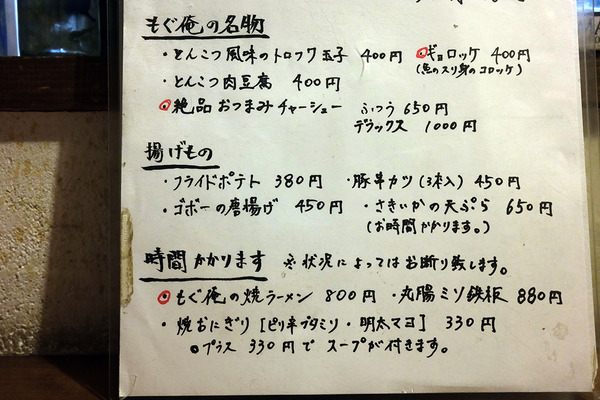 もぐ俺の名物
・とんこつ風味のトロフワ玉子 400円 ・ギョロッケ 400円
(魚のスリ身のコロッケ)
・とんこつ肉豆腐 400円
・絶品おつまみチャーシュー ふつう 650円
デラックス 1000円
揚げもの
・フライドポテト 380円 ・豚串カツ(3本入) 450円
・ゴボーの唐揚げ 450円 ・さきいかの天ぷら 650円
(お時間かかります。)
時間かかります ※状況によってはお断り致します。
・もぐ俺の焼ラーメン 800円 ・丸腸ミソ鉄板 880円
・焼おにぎり[ピリ辛ブタミソ・明太マヨ] 330円
●プラス 330円でスープが付きます。